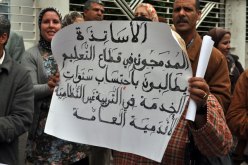 الأساتذة
المدمجون في قطاع التعليم
يطالبون باحتساب سنوات
الخدمة في التربية غير النظامية
الأقدمية العامة